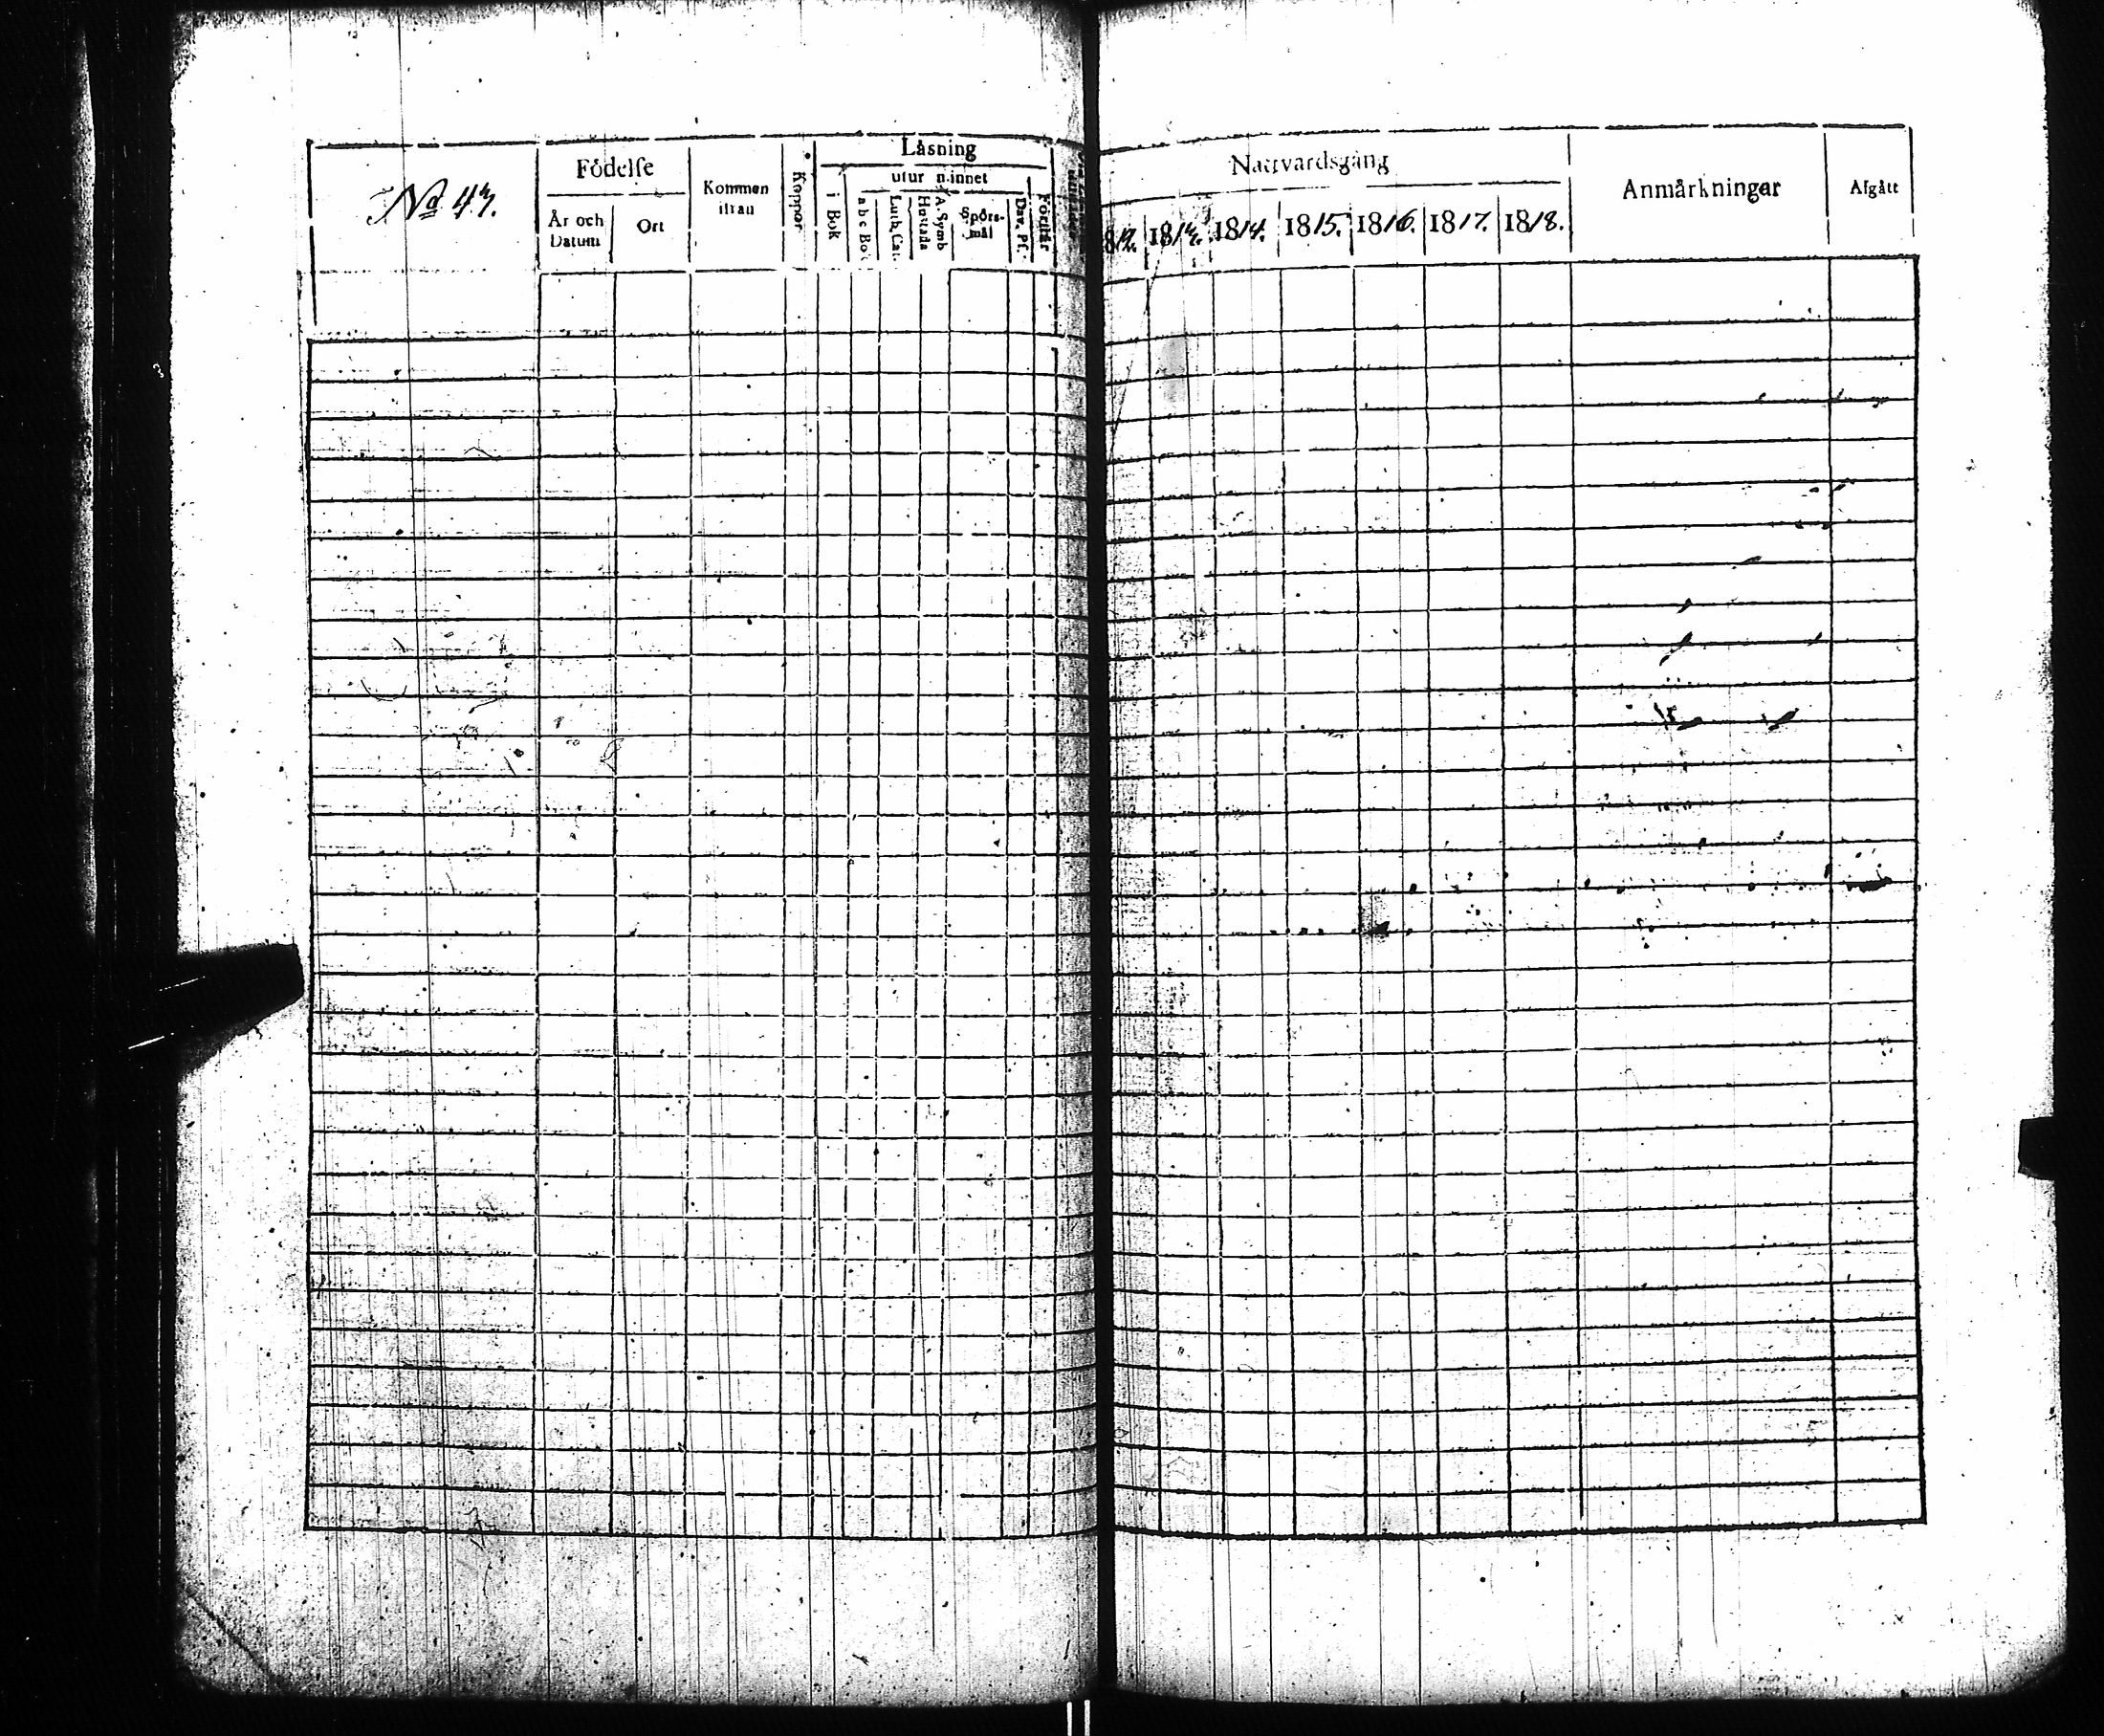 No 43.
Födelse
År och Datum
Ort
Kommen ifrån
Koppor
Läsning
i Bok
utur minnet
a b c Bok
Luth. Cat.
Hustafla
A. Symb
Spörs-mål
Dav. Ps.
Förstår
Nattvardsgång
1813. 1814. 1815. 1816. 1817. 1818.
Anmärkningar
Afgått